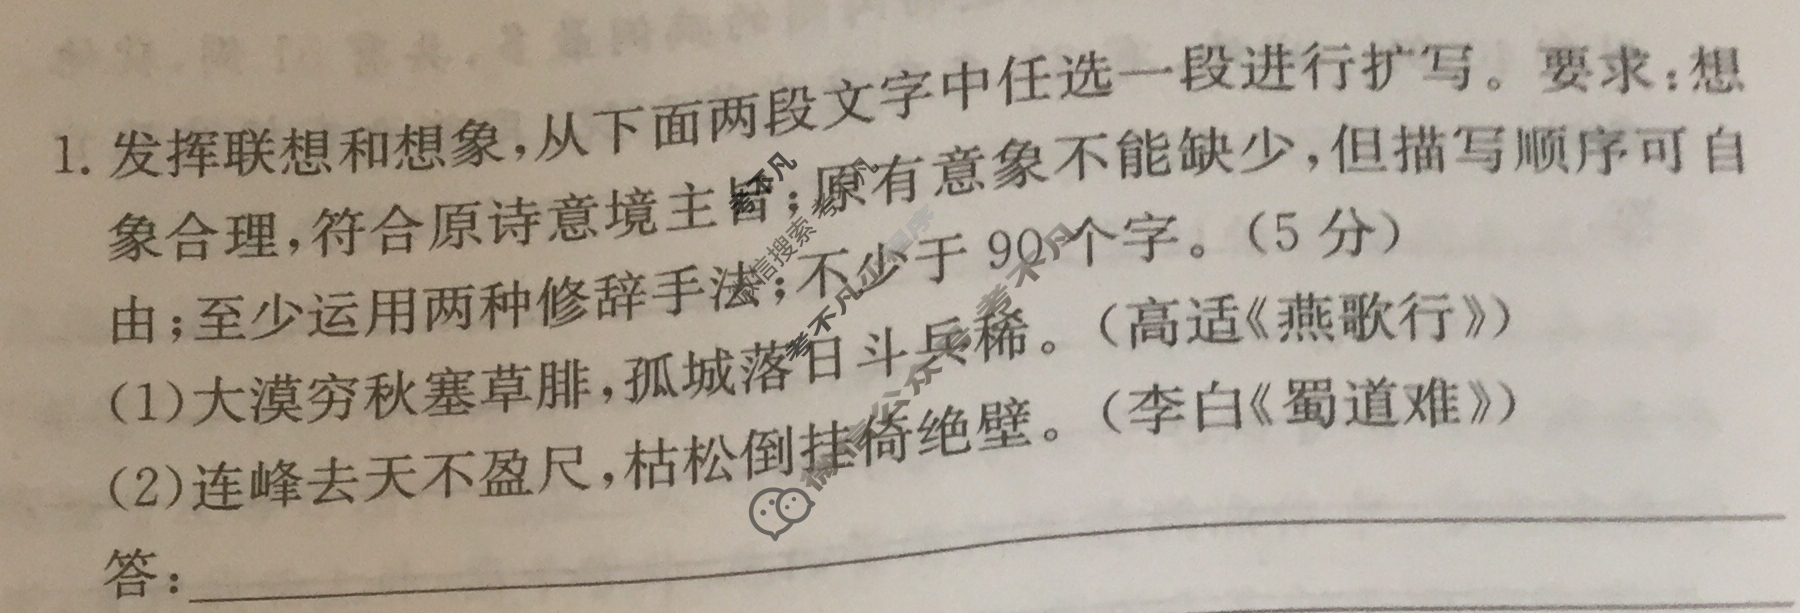 1. 发挥联想和想象,从下面两段文字中任选一段进行扩写。要求:想
象合理,符合原诗意境主旨;原有意象不能缺少,但描写顺序可自
由;至少运用两种修辞手法;不少于90个字。(5分)
(1)大漠穷秋塞草腓,孤城落日斗兵稀。(高适《燕歌行》)
(2)连峰去天不盈尺,枯松倒挂倚绝壁。(李白《蜀道难》)
答: